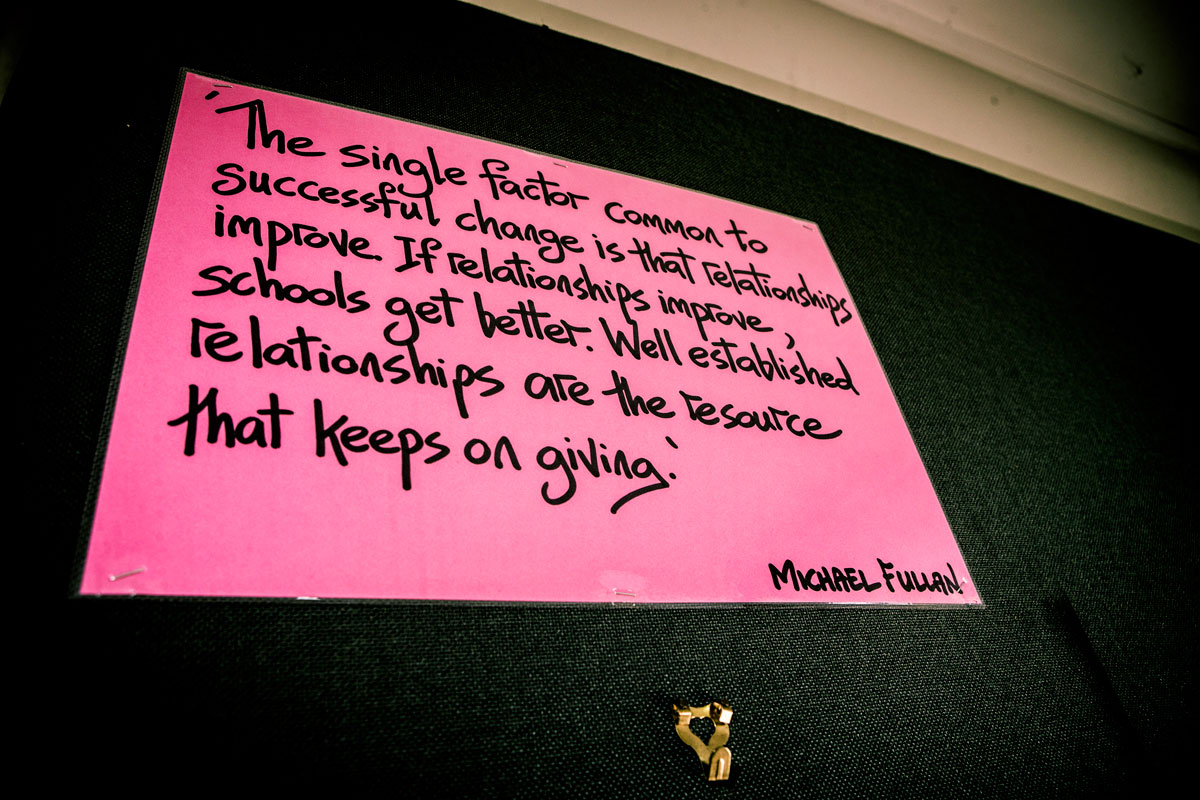 'The single factor common to
successful change is that relationships
improve. If relationships improve,
schools get better. Well established
relationships are the resource
that keeps on giving.'
MICHAEL FULLAN